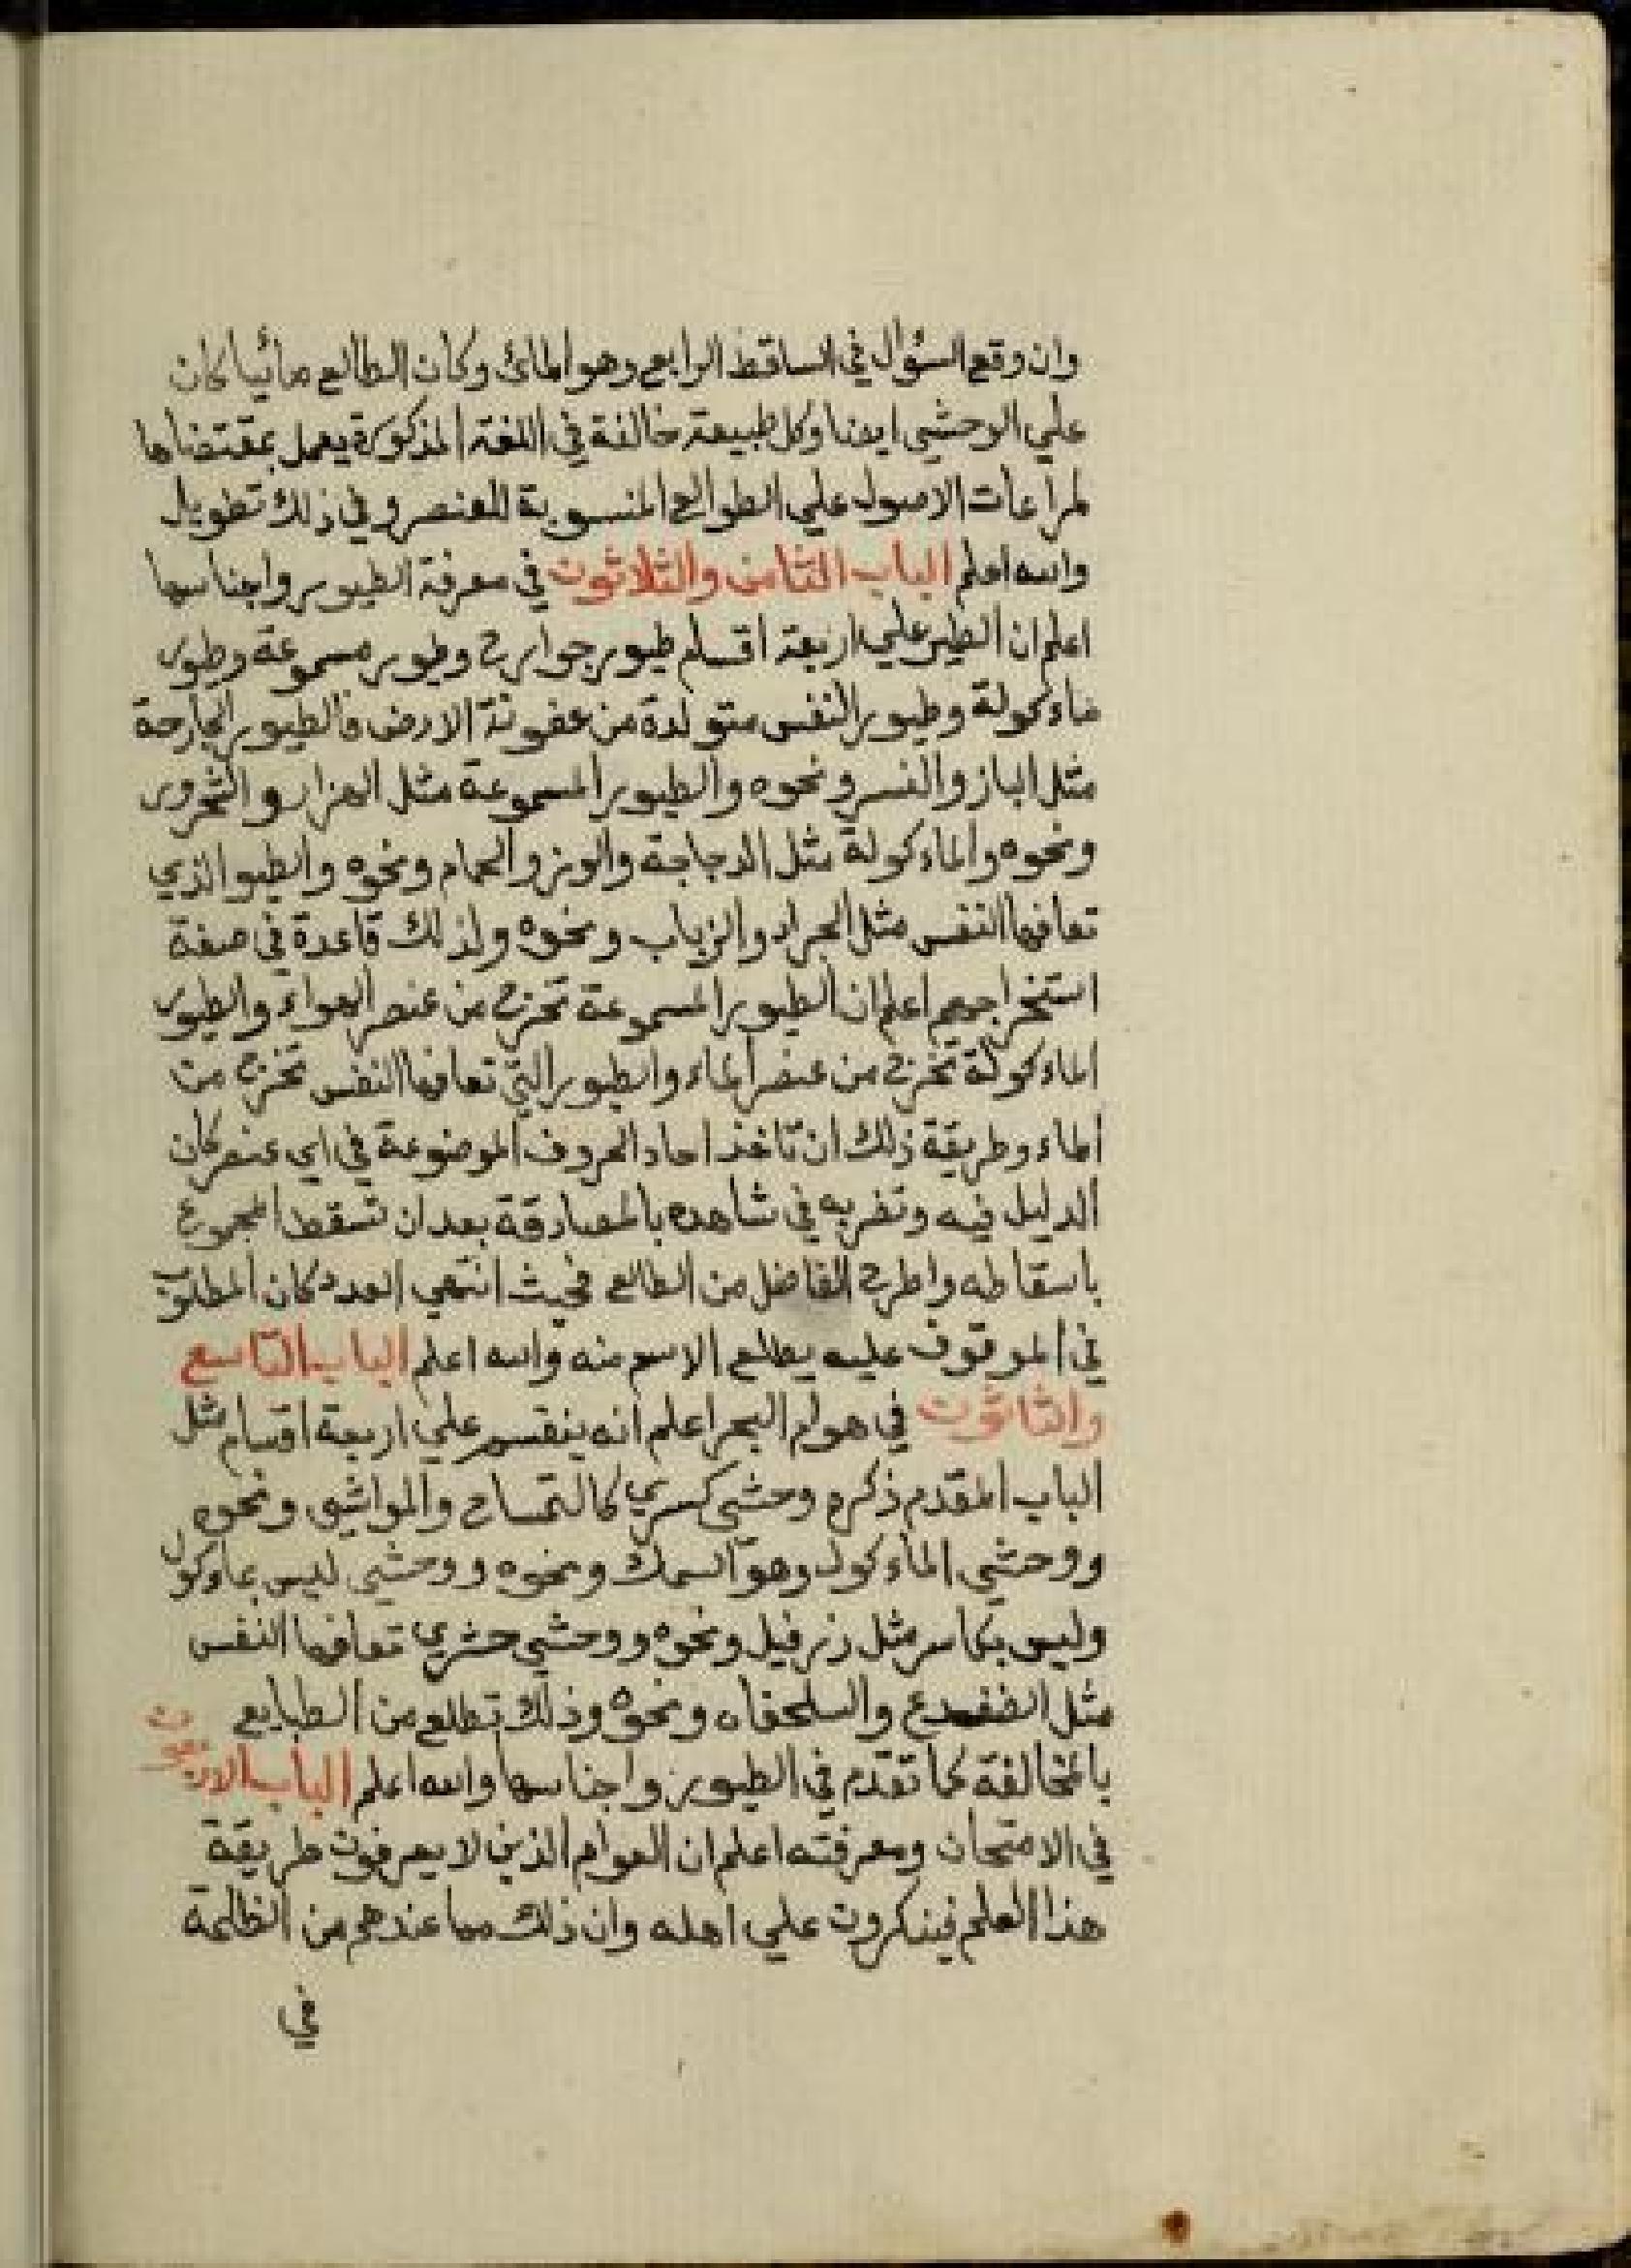 وان وقع السؤال في الساقط الرابع وهو المائى وكان الطالع مائيا كان
علي الوحشي ايضا وكل طبيعة خالفة في اللغة المذكورة يعمل بمقتضاها
لمراعات الاصول علي الطوالع المنسوبة للعنصر وفي ذلك تطويل
والله اعلم الباب الثامن والثلاثون في معرفة الطيور واجناسها
اعلم ان الطير علي اربعة اقسام طيور جوارح وطيور مسموعة وطيور
ماءكولة وطيور النفس متولدة من عفونة الارض فالطيور الجارحة
مثل الباز والنسر ونحوه والطيور المسموعة مثل الهزار والشحرور
ونحوه والماءكولة مثل الدجاجة والوز والحمام ونحوه والطيو الذي
تعافها النفس مثل الجراد والزباب ونحوه ولذلك قاعدة في صفة
استخراجهم اعلم ان الطيور المسموعة تخرج من عنصر الهواء والطيور
الماءكولة تخرج من عنصر الماء والطيور التي تعافها النفس تخرج من
الماء وطريقة ذلك ان تاخذ احاد الحروف الموضوعة في اي عنصر كان
الدليل فيه وتضربه في شاهده بالمصادقة بعد ان تسقط المجموع
باسقاطه واطرح الفاضل من الطالع فحيث انتهي العدد كان المطلوب
في الموقوف عليه يطلع الاسم منه والله اعلم الباب التاسع
والثاثون في هوام البحر اعلم انه ينقسم علي اربعة اقسام مثل
الباب المقدم ذكره وحشي كسري كالتمساح والمواشي ونحوه
ووحشي الماءكول وهو السمك ونحوه ووحشي ليس بماءكول
وليس بكاسر مثل زرفيل ونحوه ووحشي حشري تعافها النفس
مثل الضفدع والسلحفاه ونحوه وذلك تطلع من الطبايع
بالمخالفة كما تقدم في الطيور واجناسها والله اعلم الباب الاربعون
في الامتحان ومعرفته اعلم ان العوام الذين لا يعرفون طريقة
هذا العلم فينكرون علي اهله وان ذلك مما عندهم من الظلمة
في